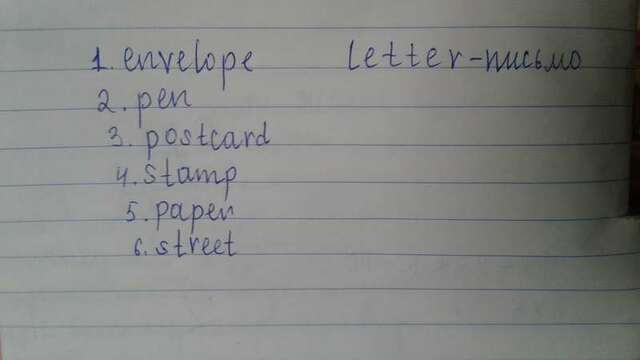 1. envelope letter-письмо
2. pen
3. postcard
4. stamp
5. paper
6. street